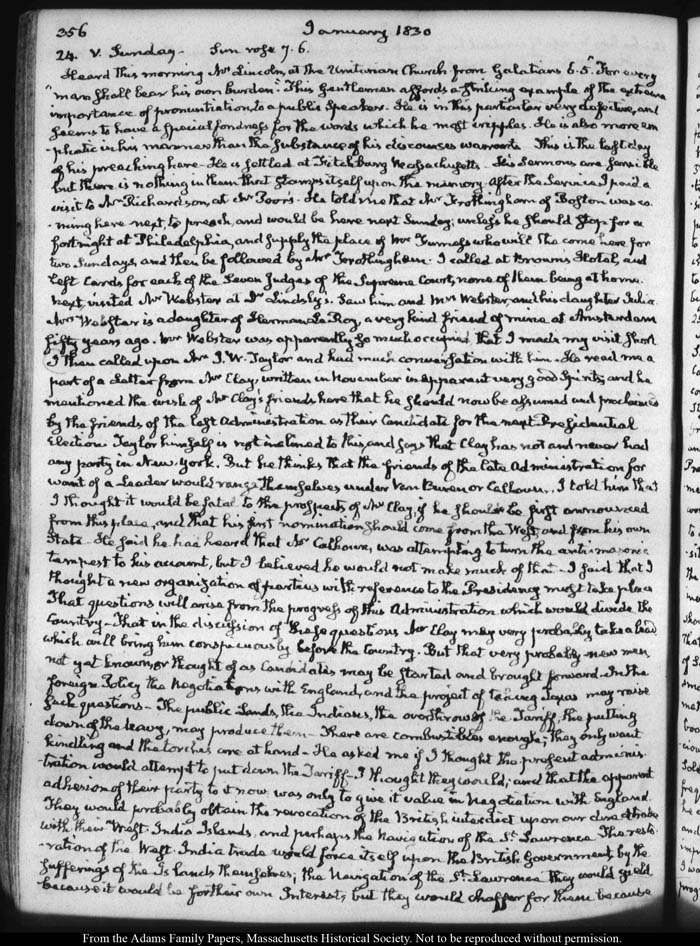 356 January 1830
24. V. Sunday - Sun rose 7. 6.
Heard this morning Mr Lincoln, at the Unitarian Church from Galatians 6.5. "For every
"man shall bear his own burden". This Gentleman affords a striking example of the extreme
importance of pronuntiation, to a public Speaker. He is in this particular very defective, and
seems to have a special fondness for the words which he most cripples. He is also more em
-phatic in his manner than the substance of his discourses warrants. This is the last day
of his preaching here. He is settled at Fitchburg Massachusetts. His Sermons are sensible
but there is nothing in them that stamps itself upon the memory. After the Service I paid a
visit to Mr Richardson, at Mr Poor's. He told me that Mr Frothingham of Boston was co
-ming here next, to preach, and would be here next Sunday; unless he should stop for a
fortnight at Philadelphia, and supply the place of Mr Furness who will come here for
two Sundays, and then be followed by Mr Frothingham. I called at Browns Hotel, and
left Cards for each of the Seven Judges of the Supreme Court, none of them being at home.
Next visited Mr Webster at Dr Lindsly's. Saw him and Mrs Webster, and his daughter Julia
Mrs Webster is a daughter of Herman Le Roy, a very kind friend of mine at Amsterdam
fifty years ago. Mr Webster was apparently so much occupied that I made my visit short
I then called upon Mr J. W. Taylor and had much conversation with him. He read me a
part of a Letter from Mr Clay, written in November in apparent very good Spirits, and he
mentioned the wish of Mr Clay's friends here that he should now be assumed and proclaimed
by the friends of the last Administration as their Candidate for the next Presidential
Election. Taylor himself is not inclined to this, and says that Clay has not and never had
any party in New-York. But he thinks that the friends of the late Administration for
want of a Leader would range themselves under Van Buren or Calhoun. I told him that
I thought it would be fatal to the prospects of Mr Clay, if he should be first announced
from this place, and that his first nomination should come from the West, and from his own
State. He said he had heard that Mr Calhoun, was attempting to turn the anti-masonic
tempest to his account, but I believed he would not make much of that. I said that I
thought a new organization of parties with reference to the Presidency must take place
That questions will arise from the progress of this Administration which would divide the
Country - That in the discussion of these questions Mr Clay may very probably take a lead
which will bring him conspicuously before the Country. But that very probably new men
not yet known, or thought of as Candidates may be started and brought forward. In the
foreign Policy the Negotiations with England, and the project of taking Texas may raise
such questions - The public Lands, the Indians, the overthrow of the Tariff, the putting
down of the Navy, may produce them - There are combustibles enough; they only want
kindling and the torches are at hand - He asked me if I thought the present adminis
-tration would attempt to put down the Tariff - I thought they would; and that the apparent
adhesion of their party to it now was only to give it value in Negotiation with England
They would probably obtain the revocation of the British interdict upon our direct trade
with their West-India Islands, and perhaps the Navigation of the St Lawrence. The resto
-ration of the West-India trade would force itself upon the British Government, by the
sufferings of the Islands themselves; the Navigation of the St Lawrence they would yield
because it would be for their own Interest, but they would chaffer for them because
From the Adams Family Papers, Massachusetts Historical Society. Not to be reproduced without permission.